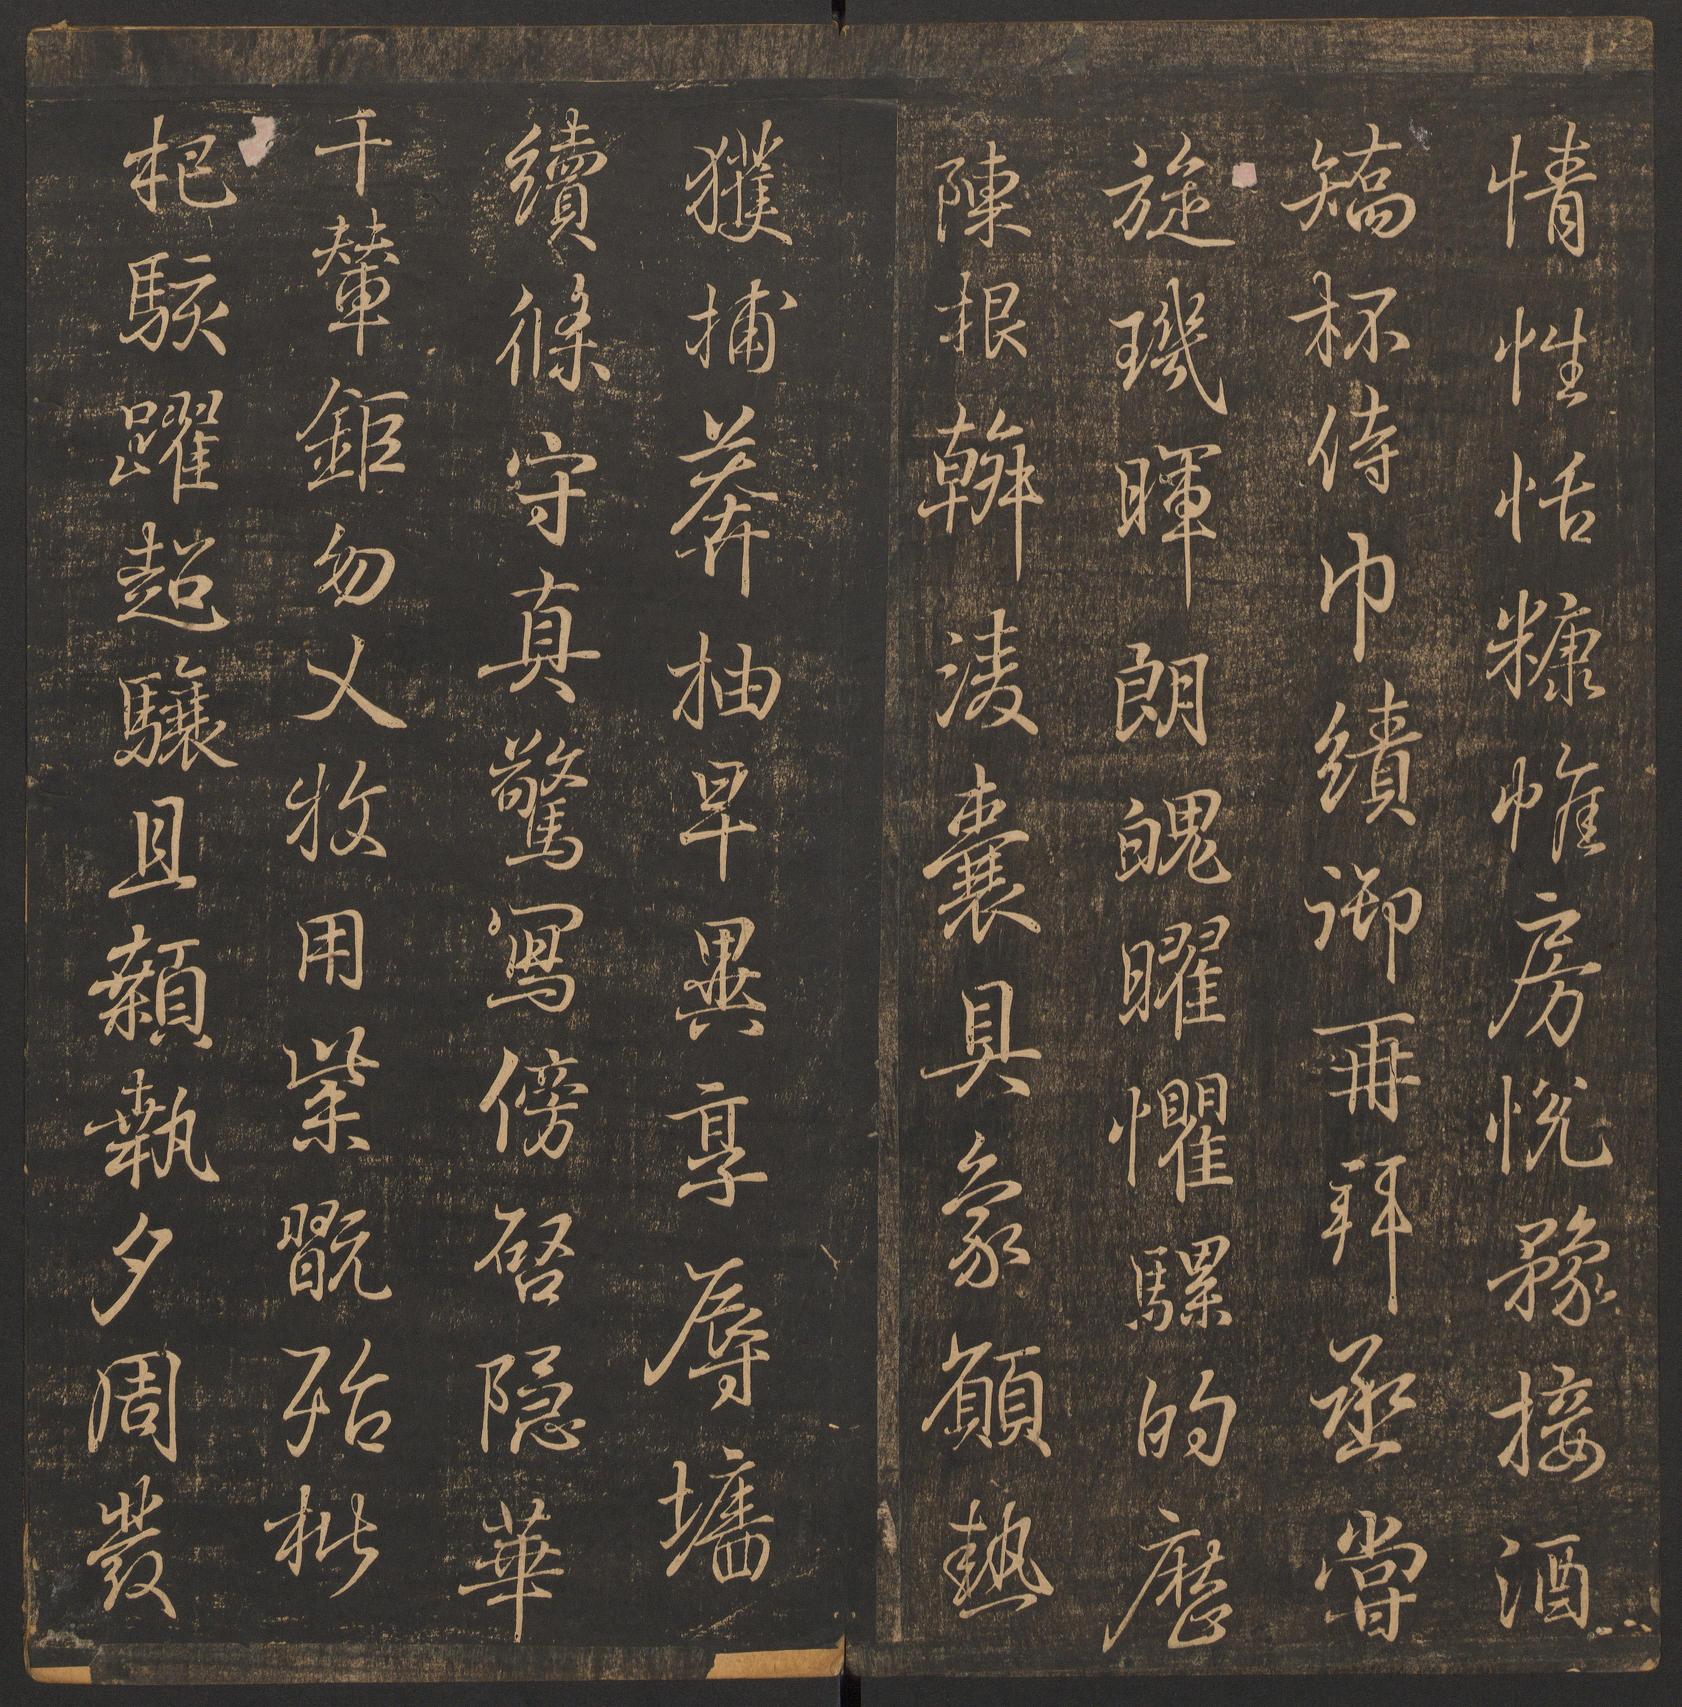 情性恬糠帷房悅豫接酒
矯杯侍巾績御再拜丞嘗
旋璣暉朗魄曜懼騾的歷
陳根斡凌囊具象願熱
獲捕莽抽早異享辱墻
續條守真驚寫傍啓隱華
千輦鉅勿乂牧用紫翫殆枇
杷駭躍超驤且顙執夕周發